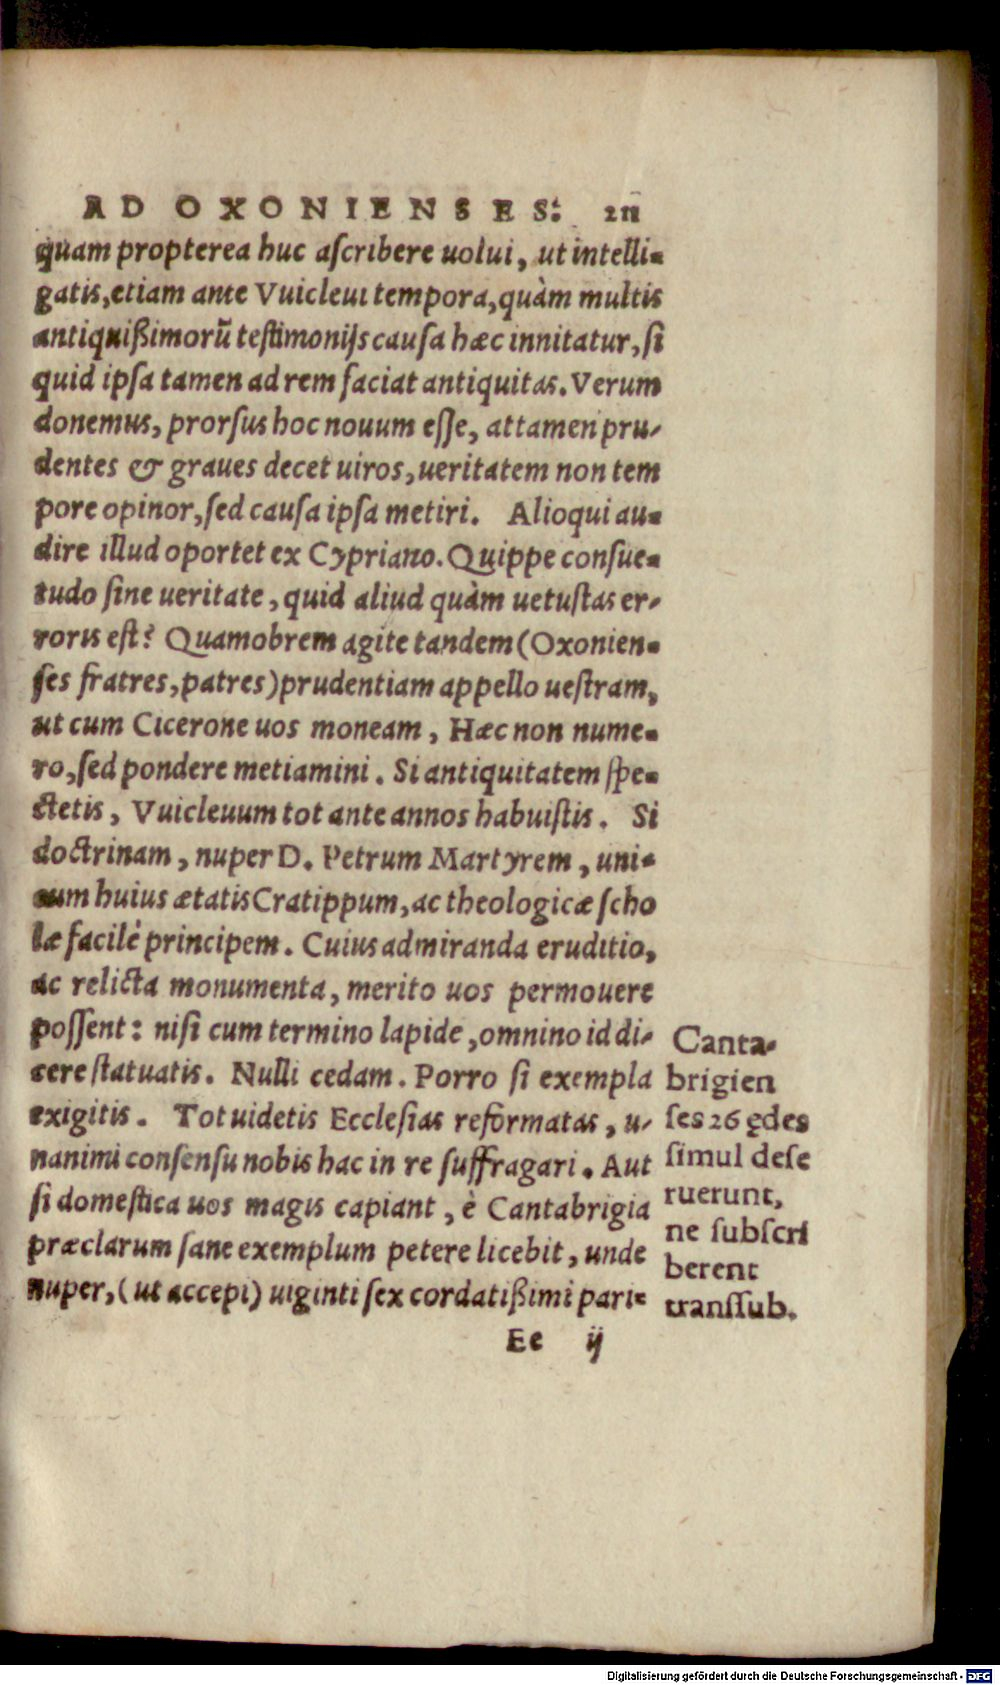 AD OXONIENSES. 211
quam propterea huc aſcribere uolui, ut intelli-
gatis, etiam ante Vuicleui tempora, quàm multis
antiquißimorũ teſtimonijs cauſa hæc innitatur, ſi
quid ipſa tamen ad rem faciat antiquitas. Verum
donemus, prorſus hoc nouum eſſe, attamen pru-
dentes & graues decet uiros, ueritatem non tem
pore opinor, ſed cauſa ipſa metiri. Alioqui au-
dire illud oportet ex Cypriano. Quippe conſue-
tudo ſine ueritate, quid aliud quàm uetuſtas er-
roris eſt? Quamobrem agite tandem (Oxonien-
ſes fratres, patres) prudentiam appello ueſtram,
ut cum Cicerone uos moneam, Hæc non nume-
ro, ſed pondere metiamini. Si antiquitatem ſpe-
ctetis, Vuicleuum tot ante annos habuiſtis. Si
doctrinam, nuper D. Petrum Martyrem, uni-
cum huius ætatis Cratippum, ac theologicæ ſcho
læ facilè principem. Cuius admiranda eruditio,
ac relicta monumenta, merito uos permouere
poſſent: niſi cum termino lapide, omnino id di-
cere ſtatuatis. Nulli cedam. Porro ſi exempla
exigitis. Tot uidetis Eccleſias reformatas, u-
nanimi conſenſu nobis hac in re ſuffragari. Aut
ſi domeſtica uos magis capiant, è Cantabrigia
præclarum ſane exemplum petere licebit, unde
nuper, (ut accepi) uiginti ſex cordatißimi pari-
Ee ij
Canta-
brigien
ſes 26 ędes
ſimul deſe
ruerunt,
ne ſubſcri
berent
tranſſub.
Digitalisierung gefördert durch die Deutsche Forschungsgemeinschaft - DFG